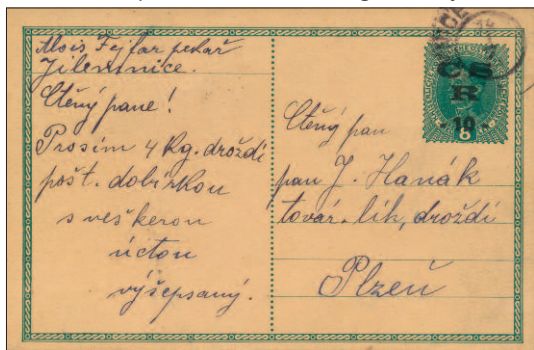 Alois Fejfar pekař
Jilemnice.
Ctěný pane!
Prosím 4 Kg. droždí
pošt. dobírkou
s veškerou
úctou
výšepsaný.
ČS
R
10
8
Ctěný pan
pan J. Hanák
továr. lih, droždí
Plzeň